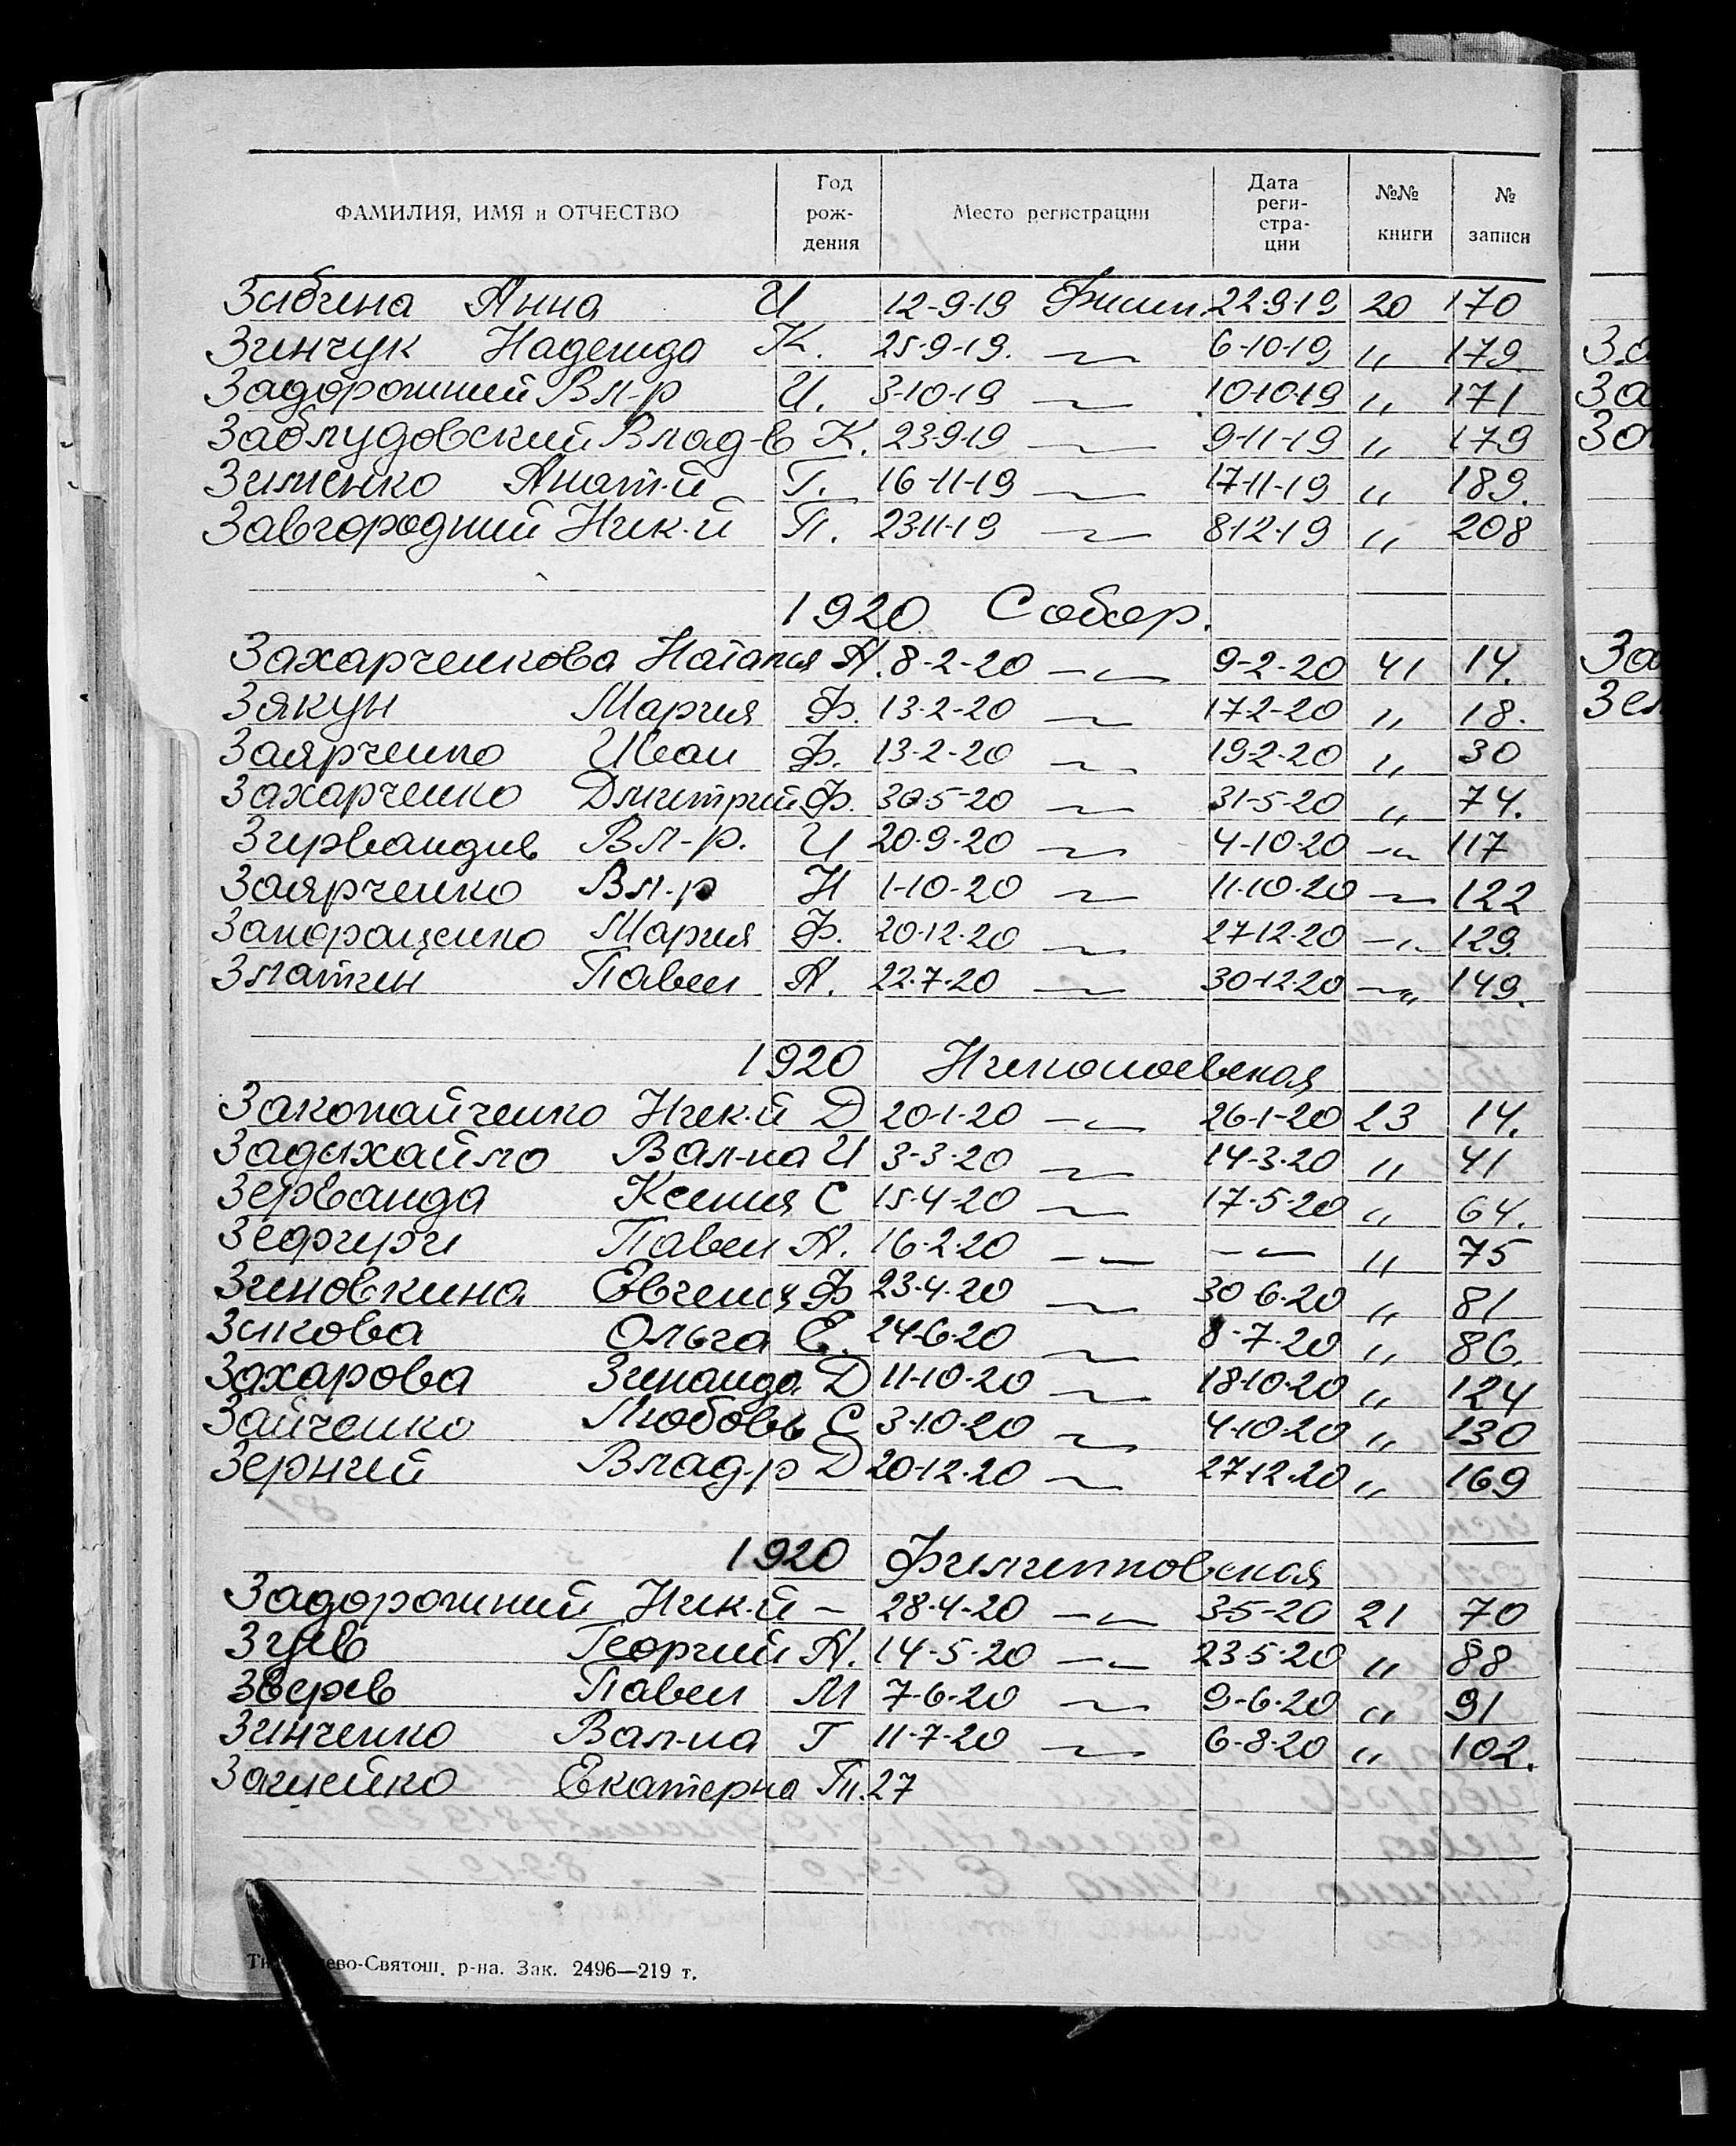 ФАМИЛИЯ, ИМЯ и ОТЧЕСТВО Год рождения Место регистрации Дата регистрации №№ книги № записи
Зибгина Анна И 12-9-19 Филип. 22-9-19 20 170
Зинчук Надежда К. 25-9-19. —„— 6-10-19 „ 179.
Задорожний Вл-р И. 3-10-19 —„— 10-10-19 „ 171
Заблудовский Влад-в К. 23-9-19 —„— 9-11-19 „ 179
Зименко Анат-й Г. 16-11-19 —„— 17-11-19 „ 189.
Завгородний Ник-й П. 23-11-19 —„— 8-12-19 „ 208
1920 Собор.
Захарченкова Наталья А. 8-2-20 —„— 9-2-20 41 14.
Зякун Мария Ф. 13-2-20 —„— 17-2-20 „ 18.
Заярченко Иван Ф. 13-2-20 —„— 19-2-20 „ 30
Захарченко Дмитрий Ф. 30-5-20 —„— 31-5-20 „ 74.
Зирвандив Вл-р. И 20-9-20 —„— 4-10-20 —„— 117
Заярченко Вл-р И 1-10-20 —„— 11-10-20 —„— 122
Запоращенко Мария Ф. 20-12-20 —„— 27-12-20 —„— 129.
Златкин Павел А. 22-7-20 —„— 30-12-20 —„— 149.
1920 Николаевская
Закопайченко Ник-й Д 20-1-20 —„— 26-1-20 23 14.
Задихайло Вал-на И 3-3-20 —„— 14-3-20 „ 41
Зерванда Ксения С 15-4-20 —„— 17-5-20 „ 64.
Зеаргури Павел А. 16-2-20 —„— —„— „ 75
Зиновкина Евгения Ф 23-4-20 —„— 30-6-20 „ 81
Зикова Ольга Е. 24-6-20 —„— 8-7-20 „ 86.
Захарова Зинаида Д 11-10-20 —„— 18-10-20 „ 124
Зайченко Любовь С 3-10-20 —„— 4-10-20 „ 130
Зерний Влад-р Д 20-12-20 —„— 27-12-20 „ 169
1920 Филипповская
Задорожний Ник-й — 28-4-20 —„— 3-5-20 21 70
Зуев Георгий А. 14-5-20 —„— 23-5-20 „ 88
Зверев Павел М 7-6-20 —„— 9-6-20 „ 91
Зинченко Вал-на Г 11-7-20 —„— 6-8-20 „ 102.
Екатерна 27
ево-Святош. р-на. Зак. 2496—219 т.